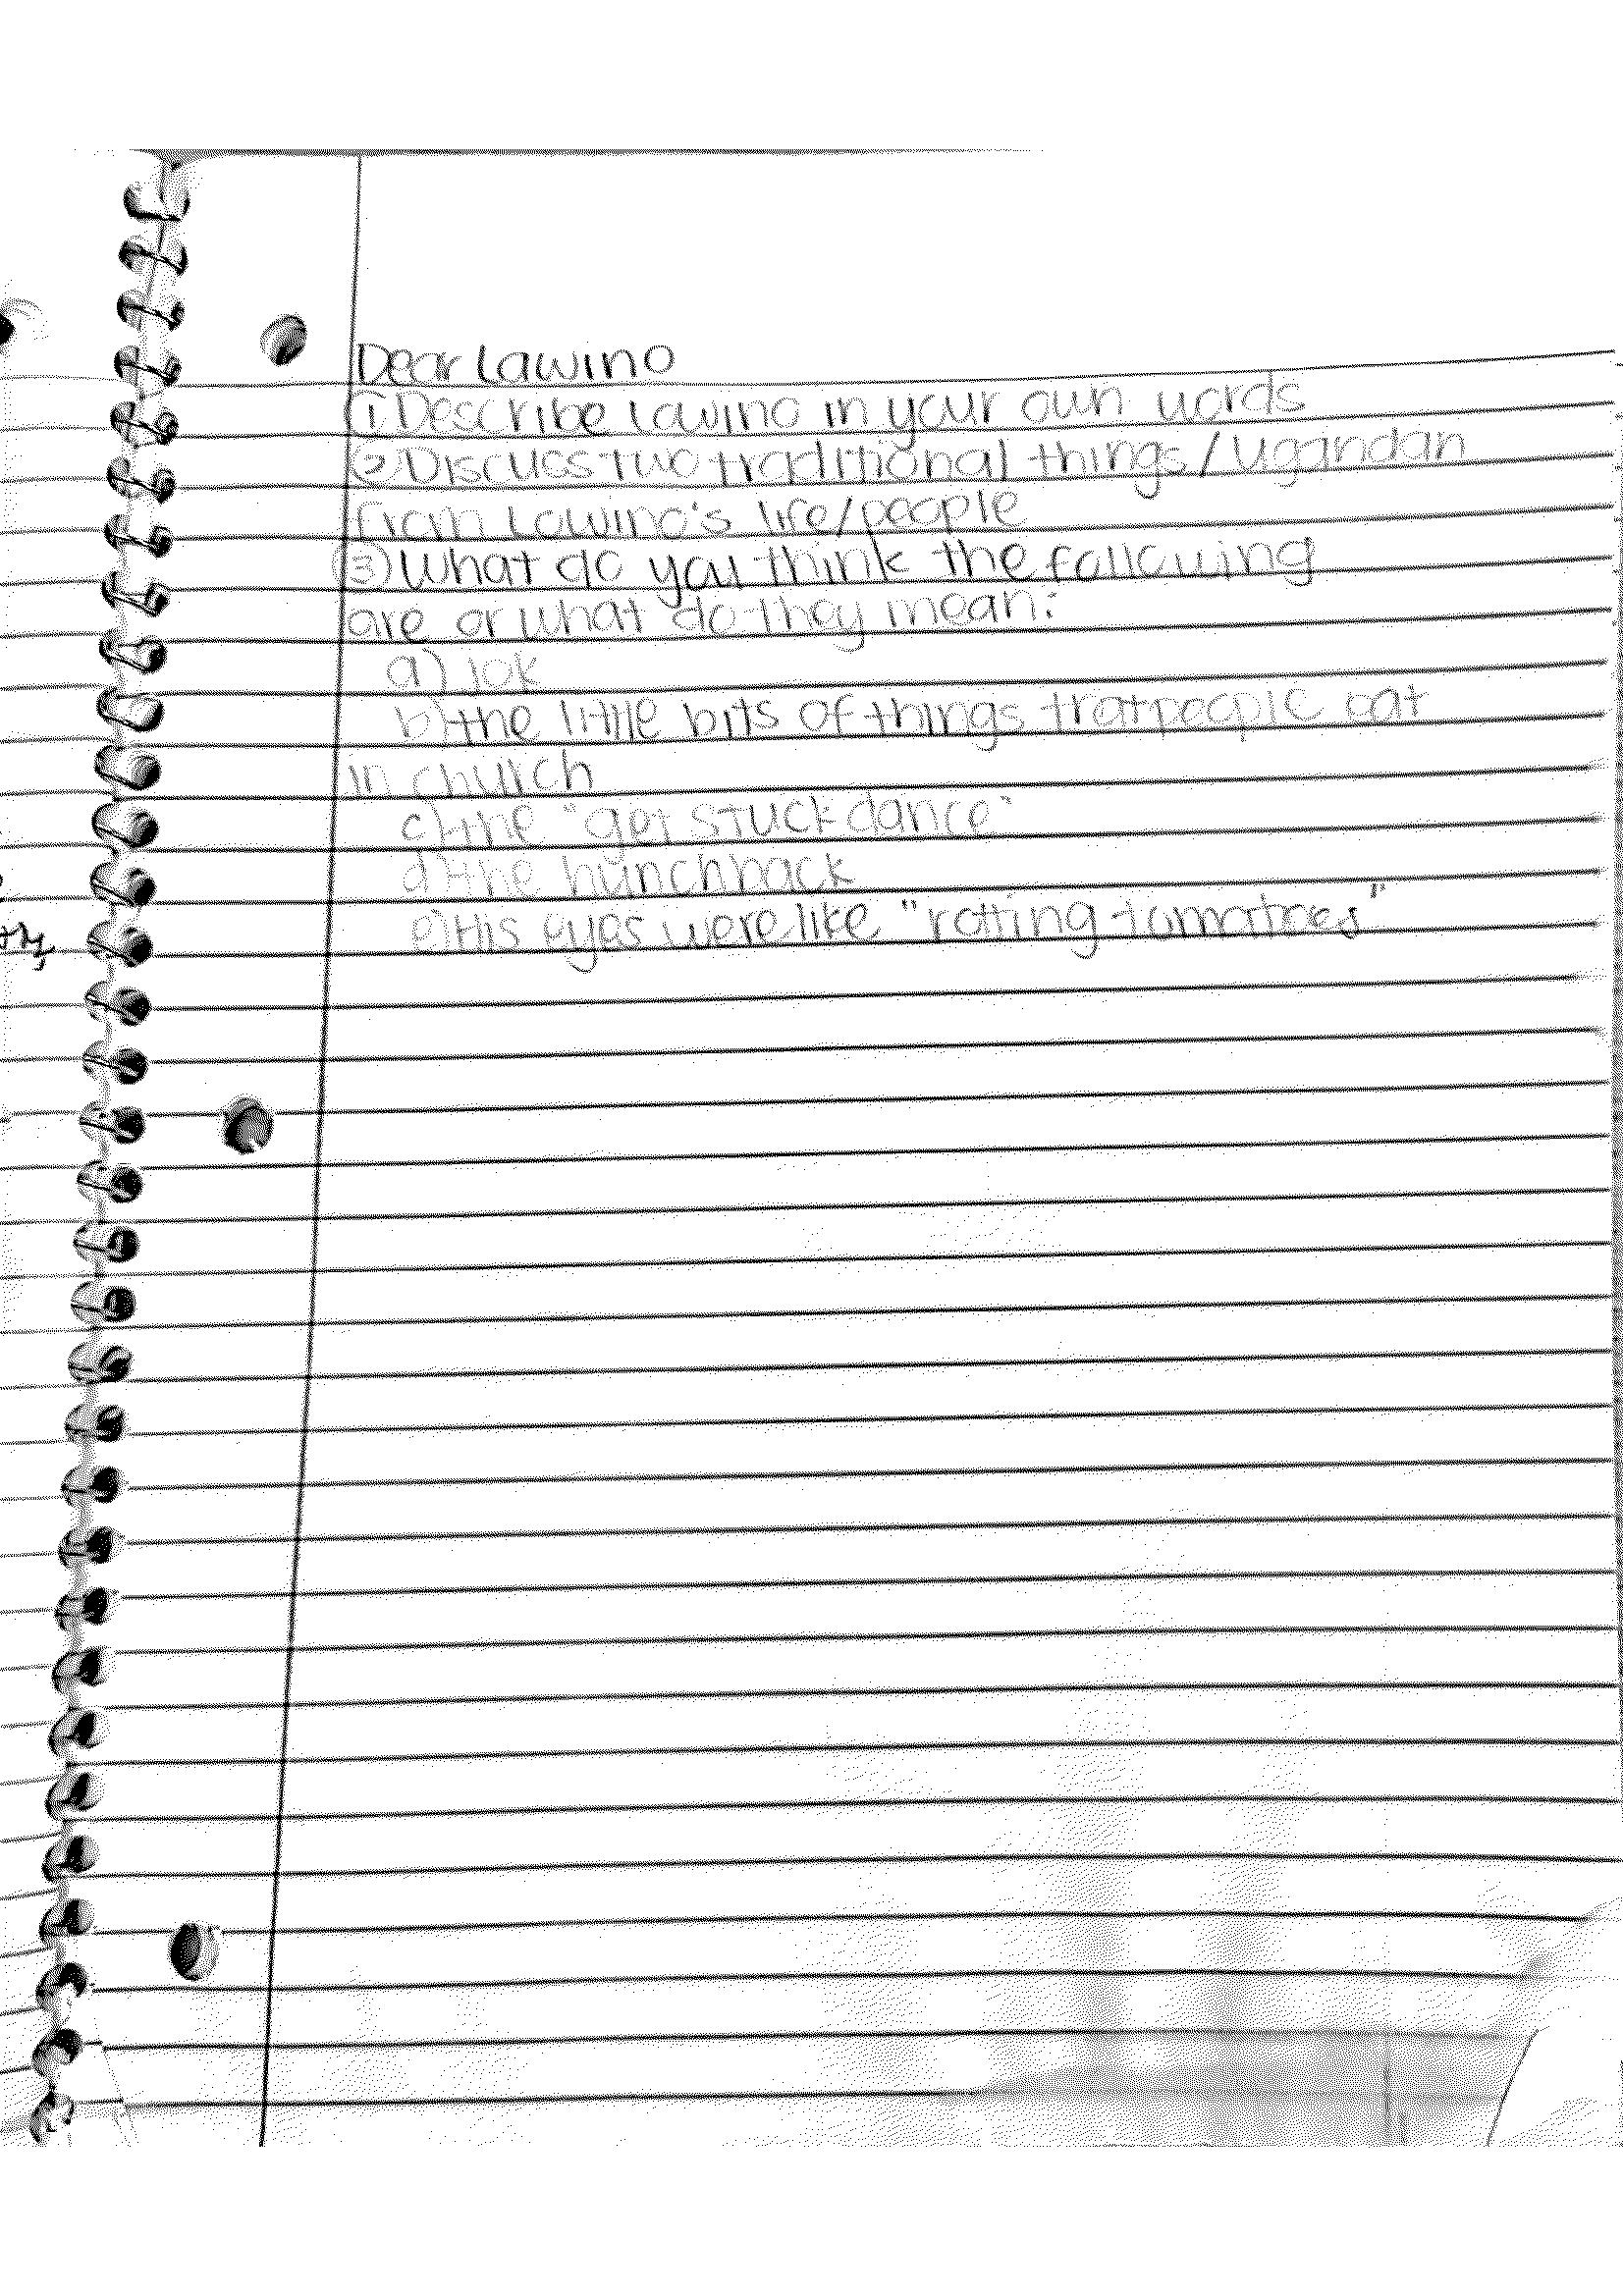 Dear Lawino
① Describe Lawino in your own words
② Discuss two traditional things/Ugandan
from Lawino's life/people
③ What do you think the following
are or what do they mean:
a) jok
b) the little bits of things that people eat
in church
c) the "get stuck dance"
d) the hunchback
e) His eyes were like "rotting tomatoes"